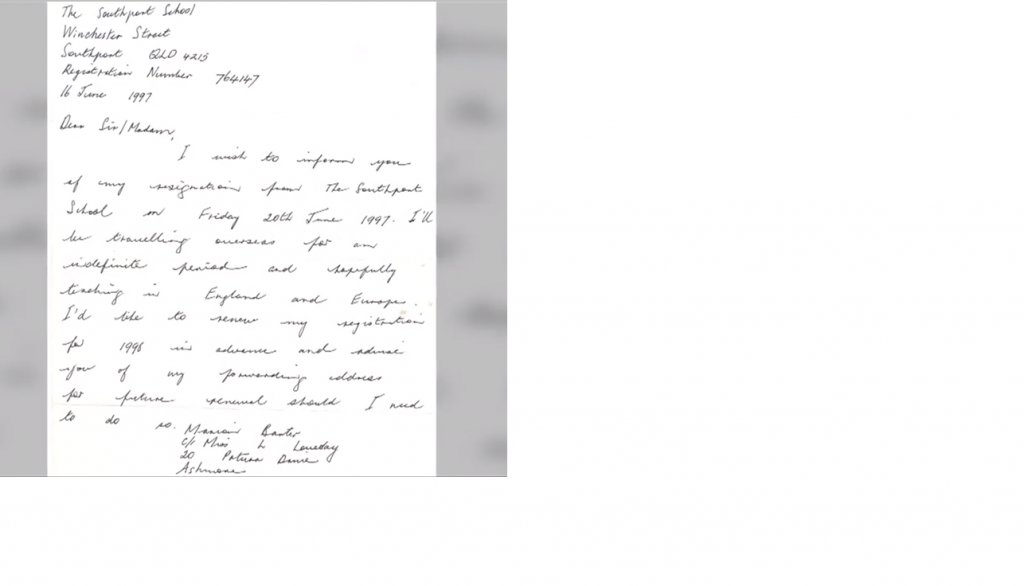 The Southport School
Winchester Street
Southport QLD 4215
Registration Number 764147
16 June 1997
Dear Sir/Madam,
I wish to inform you
of my resignation from The Southport
School on Friday 20th June 1997. I'll
be travelling overseas for an
indefinite period and hopefully
teaching in England and Europe.
I'd like to renew my registration
for 1998 in advance and advise
you of my forwarding address
for future renewal should I need
to do so.
Marion Barter
c/o Miss L Loveday
20 Drive
Ashmore